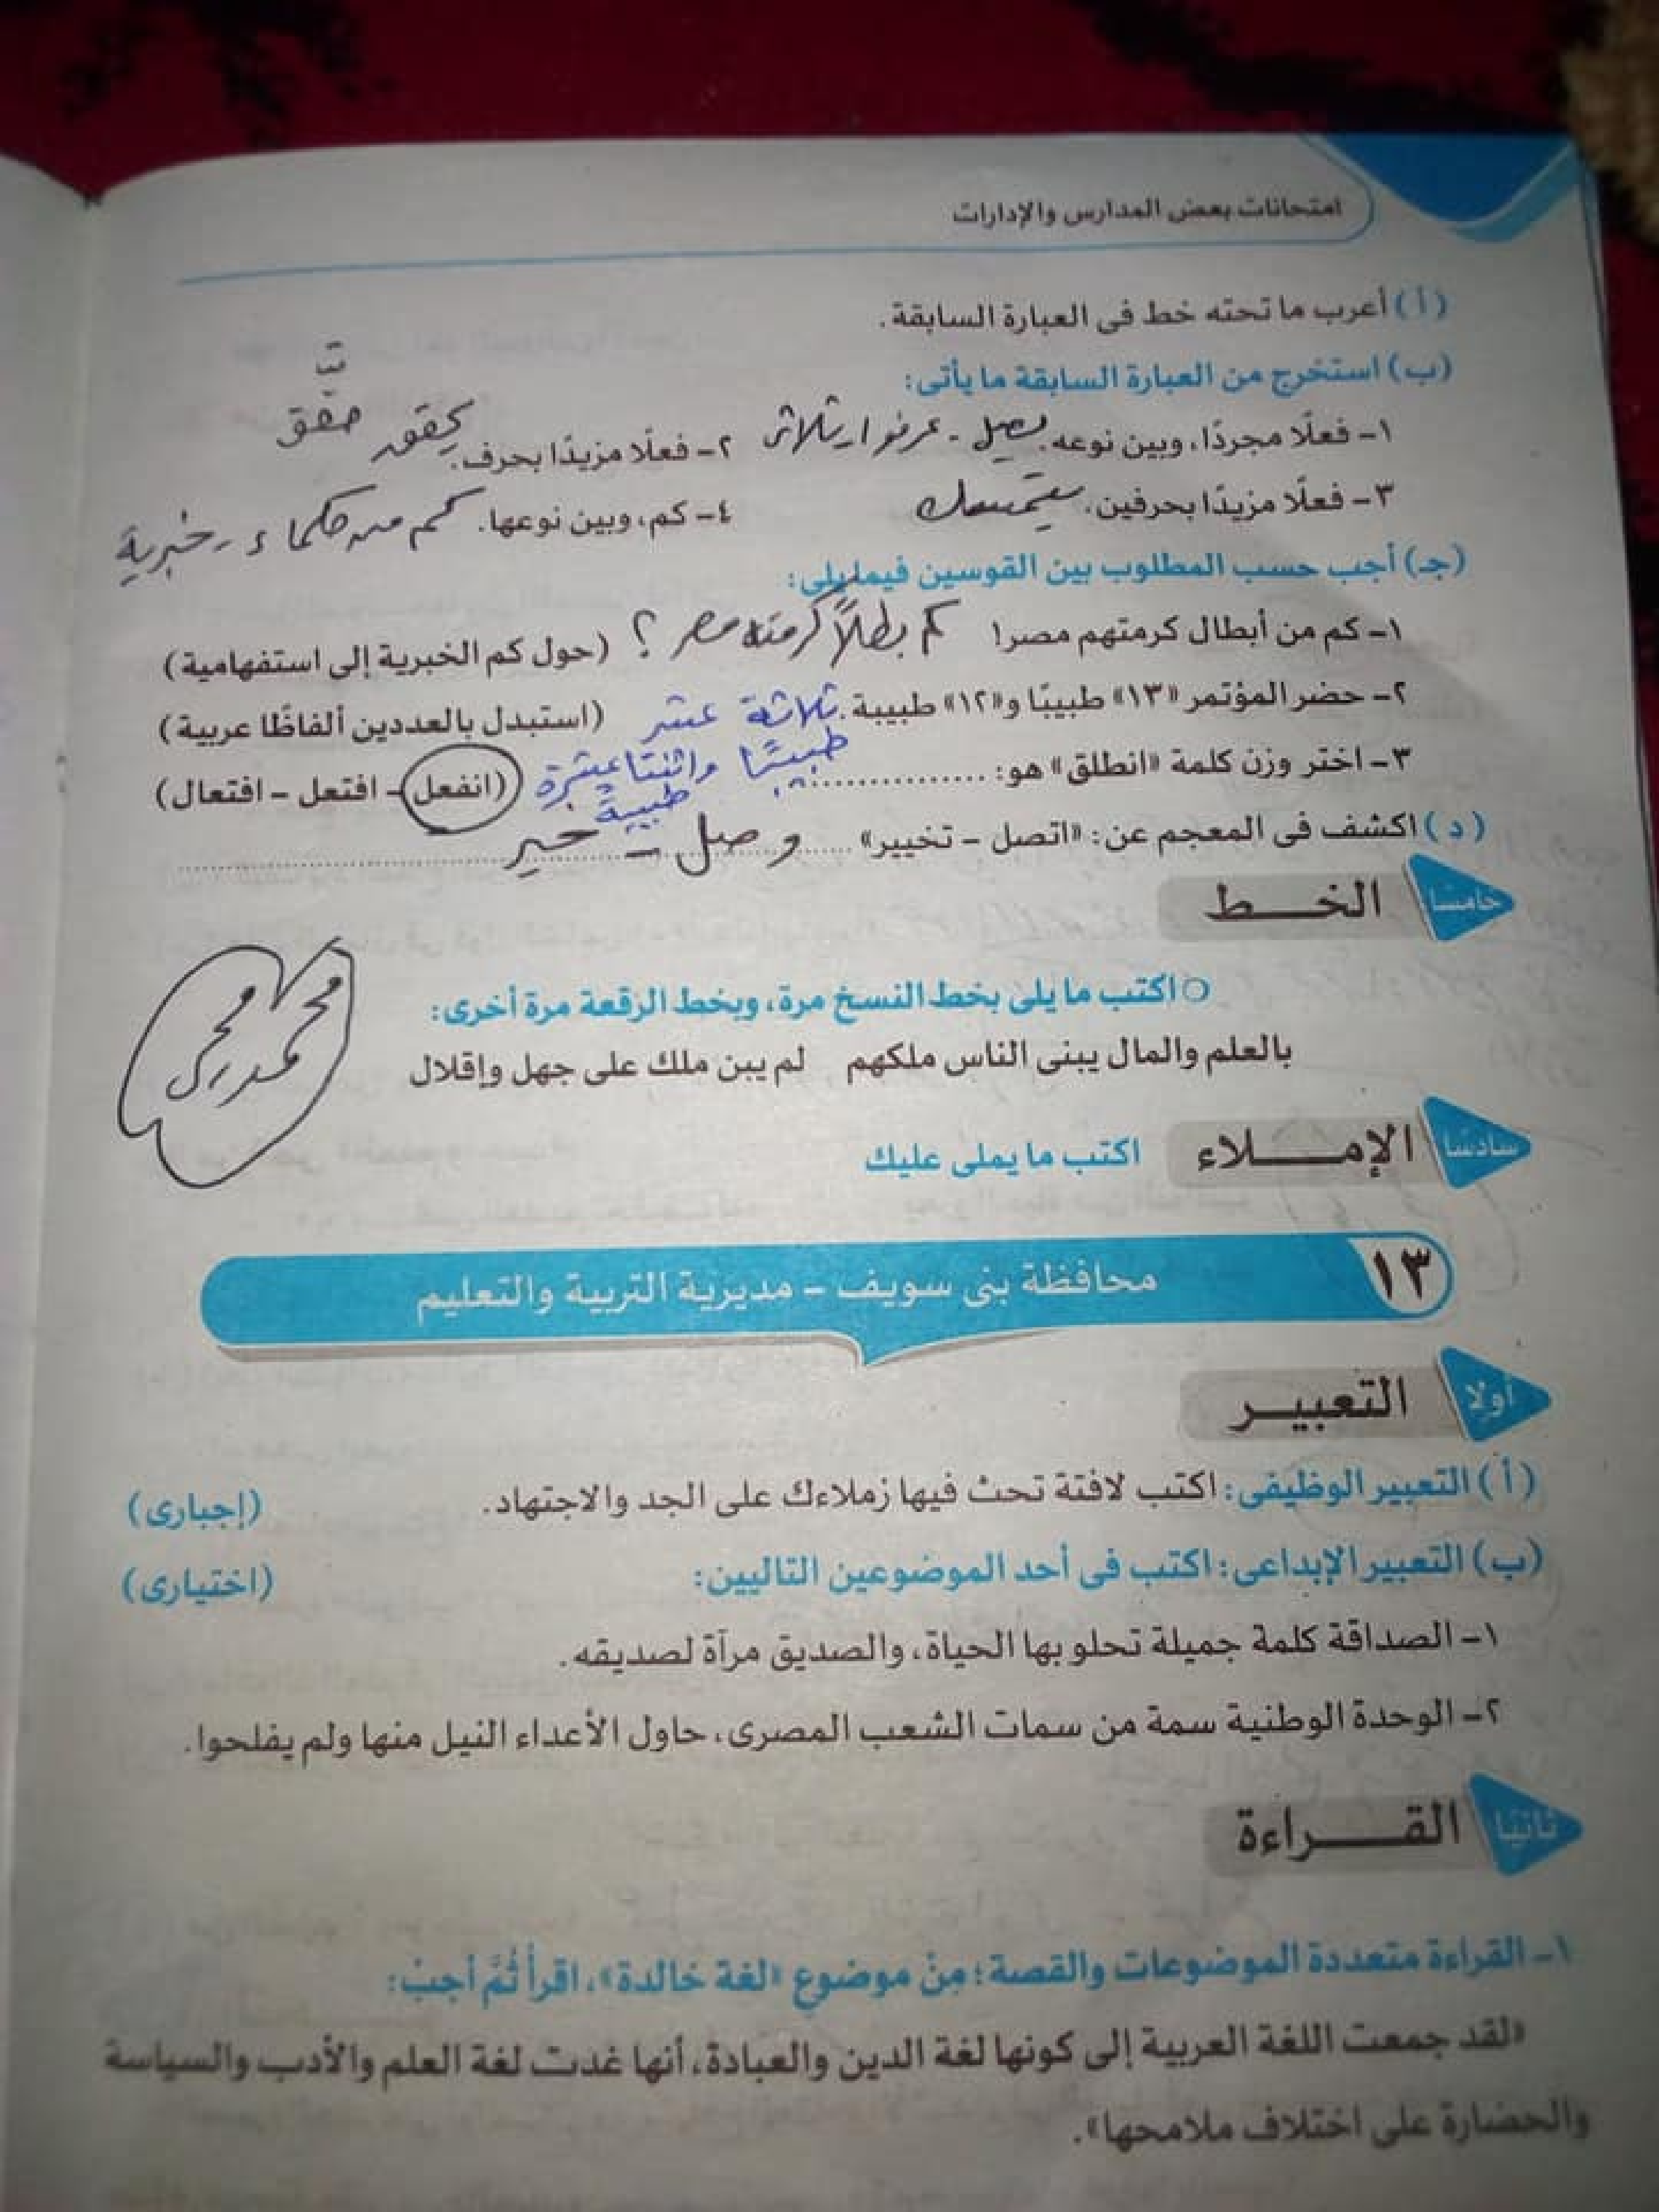 امتحانات بعض المدارس والإدارات
(أ) أعرب ما تحته خط فى العبارة السابقة.
(ب) استخرج من العبارة السابقة ما يأتى:
١- فعلًا مجردًا، وبين نوعه. يصل - عرفوا - ثلاثى ٢- فعلًا مزيدًا بحرف. يحقق حقق
٣- فعلًا مزيدًا بحرفين. يتمسك ٤- كم، وبين نوعها. كم من حكماء - خبرية
(جـ) أجب حسب المطلوب بين القوسين فيما يلى:
١- كم من أبطال كرمتهم مصر! كم بطلًا كرمته مصر ؟ (حول كم الخبرية إلى استفهامية)
٢- حضر المؤتمر «١٣» طبيبًا و«١٢» طبيبة. ثلاثة عشر (استبدل بالعددين ألفاظًا عربية)
طبيبًا واثنتا عشرة
طبيبة
٣- اختر وزن كلمة «انطلق» هو: ............... (انفعل - افتعل - افتعال)
(د) اكشف فى المعجم عن: «اتصل - تخيير» وصل - خير
خامسًا الخـــط
اكتب ما يلى بخط النسخ مرة، وبخط الرقعة مرة أخرى:
بالعلم والمال يبنى الناس ملكهم لم يبن ملك على جهل وإقلال
محمد
سادسًا الإمـــلاء اكتب ما يملى عليك
١٣ محافظة بنى سويف - مديرية التربية والتعليم
أولا التعبيـر
(أ) التعبير الوظيفى: اكتب لافتة تحث فيها زملاءك على الجد والاجتهاد. (إجبارى)
(ب) التعبير الإبداعى: اكتب فى أحد الموضوعين التاليين: (اختيارى)
١- الصداقة كلمة جميلة تحلو بها الحياة، والصديق مرآة لصديقه.
٢- الوحدة الوطنية سمة من سمات الشعب المصرى، حاول الأعداء النيل منها ولم يفلحوا.
ثانيًا القـــراءة
١- القراءة متعددة الموضوعات والقصة؛ مِنْ موضوع «لغة خالدة»، اقرأْ ثُمَّ أجبْ:
«لقد جمعت اللغة العربية إلى كونها لغة الدين والعبادة، أنها غدت لغة العلم والأدب والسياسة
والحضارة على اختلاف ملامحها».